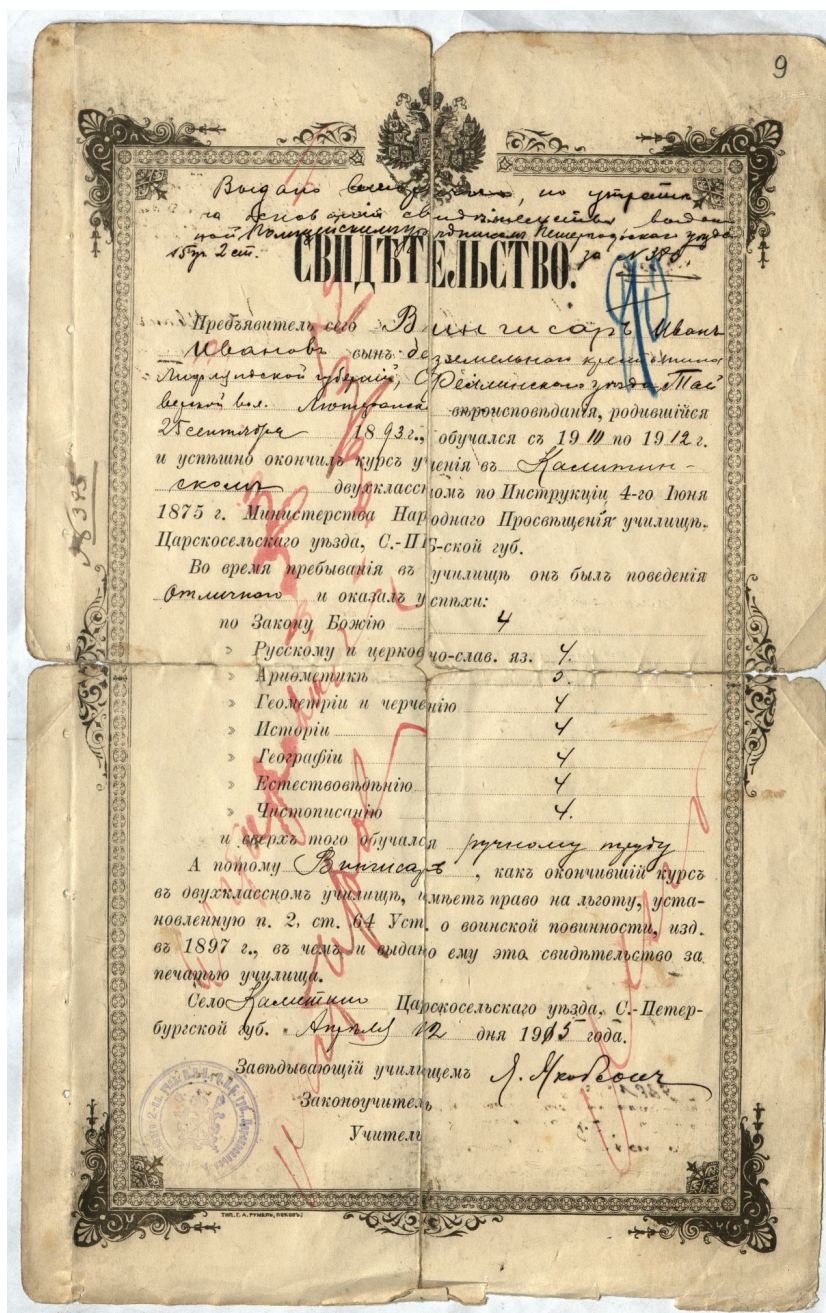 9
Выдано вторично, по утрате,
на основаній свидѣтельства выдан
ной Полицейскимъ урядникомъ Петергофскаго уѣзда
15 уч. 2 ст. за № 380.
СВИДѢТЕЛЬСТВО.
Предъявитель сего Вингисаръ Иванъ
Ивановъ сынъ безземельнаго крестьянина
Лифляндской губерніи, Феллинскаго уѣзда Тай
верской вол. Лютеранск вѣроисповѣданія, родившійся
25 сентября 1893 г., обучался съ 1910 по 1912 г.
и успѣшно окончилъ курсъ ученія въ Калитин-
скомъ двухклассномъ по Инструкціи 4-го Іюня
1875 г. Министерства Народнаго Просвѣщенія училищѣ.
Царскосельскаго уѣзда, С.-ПБ-ской губ.
Во время пребыванія въ училищѣ онъ былъ поведенія
отличнаго и оказалъ успѣхи:
по Закону Божію 4
» Русскому и церковно-слав. яз. 4.
» Ариѳметикѣ 3.
» Геометріи и черченію 4
» Исторіи 4
» Географіи 4
» Естествовѣдѣнію 4
» Чистописанію 4.
и сверхъ того обучался ручному труду
А потому Вингисаръ, какъ окончившій курсъ
въ двухклассномъ училищѣ, имѣетъ право на льготу, уста-
новленную п. 2, ст. 64 Уст. о воинской повинности, изд.
въ 1897 г., въ чемъ и выдано ему это свидѣтельство за
печатью училища.
Село Калитино Царскосельскаго уѣзда, С.-Петер-
бургской губ. Апрѣля 12 дня 1915 года.
Завѣдывающій училищемъ Я. Якобсонъ
Законоучитель
Учитель
ТИП. С. А. РУМЕЛЬ, ПСКОВЪ.
№ 8375